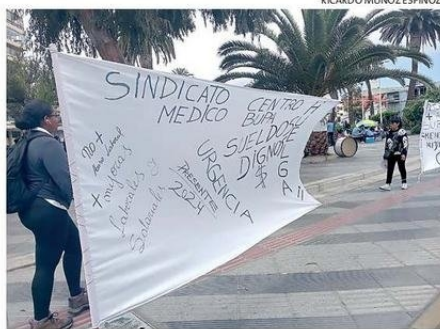 RICARDO MUÑOZ ESPINOZ
SINDICATO
MEDICO
CENTRO
BUPA
SUELDOS
DIGNO
$
HUELGA!!
URGENCIA
PRESENTE
2024
NO+
laboral
+ mejoras
laborales y
Salariales